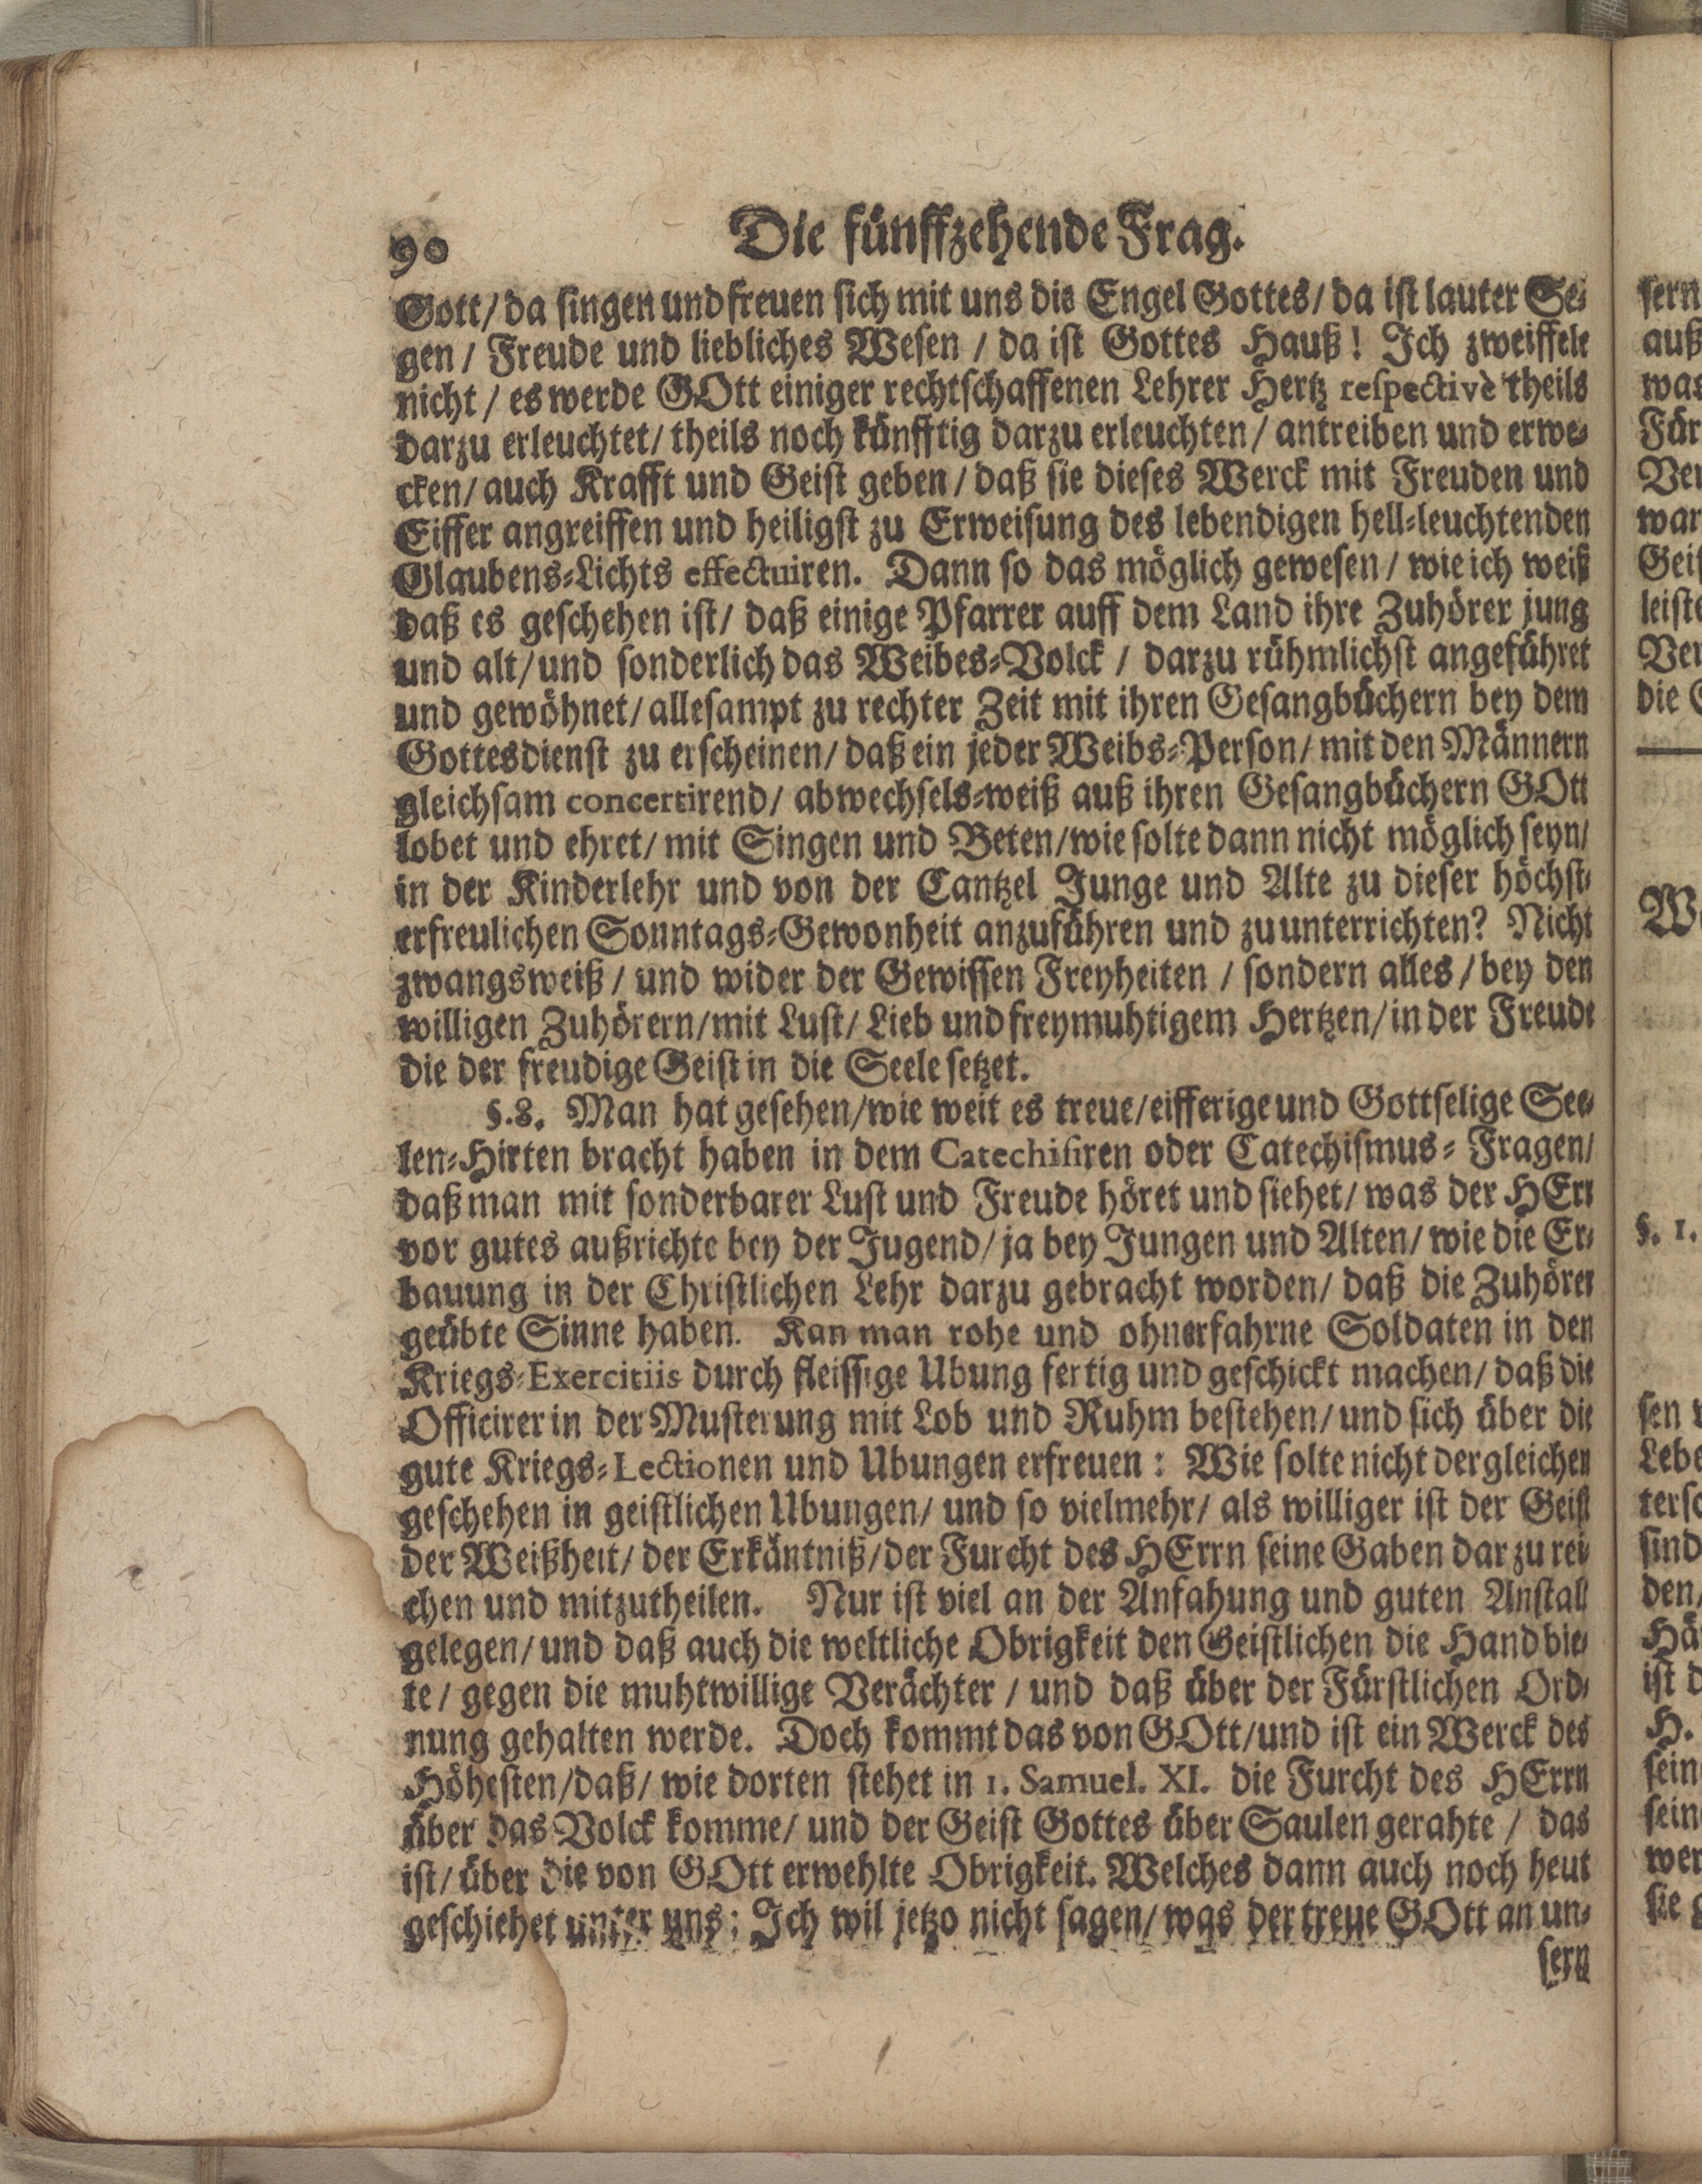 90
Die fünffzehende Frag.
Gott/ da singen und freuen sich mit uns die Engel Gottes/ da ist lauter Se-
gen / Freude und liebliches Wesen / da ist Gottes Hauß! Ich zweiffele
nicht / es werde GOtt einiger rechtschaffenen Lehrer Hertz respectivè theils
darzu erleuchtet/ theils noch künfftig darzu erleuchten/ antreiben und erwe-
cken/ auch Krafft und Geist geben / daß sie dieses Werck mit Freuden und
Eiffer angreiffen und heiligst zu Erweisung des lebendigen hell-leuchtenden
Glaubens-Lichts effectuiren. Dann so das möglich gewesen / wie ich weiß
daß es geschehen ist/ daß einige Pfarrer auff dem Land ihre Zuhörer jung
und alt/ und sonderlich das Weibes-Volck / darzu rühmlichst angeführet
und gewöhnet/ allesampt zu rechter Zeit mit ihren Gesangbüchern bey dem
Gottesdienst zu erscheinen/ daß ein jeder Weibs-Person/ mit den Männern
gleichsam concertirend/ abwechsels-weiß auß ihren Gesangbüchern GOtt
lobet und ehret/ mit Singen und Beten/ wie solte dann nicht möglich seyn/
in der Kinderlehr und von der Cantzel Junge und Alte zu dieser höchst-
erfreulichen Sonntags-Gewonheit anzuführen und zu unterrichten? Nicht
zwangsweiß / und wider der Gewissen Freyheiten / sondern alles / bey den
willigen Zuhörern/ mit Lust/ Lieb und freymuhtigem Hertzen/ in der Freude
die der freudige Geist in die Seele setzet.
§.8. Man hat gesehen/ wie weit es treue/ eifferige und Gottselige See-
len-Hirten bracht haben in dem Catechisiren oder Catechismus-Fragen/
daß man mit sonderbarer Lust und Freude höret und siehet/ was der HErr
vor gutes außrichte bey der Jugend/ ja bey Jungen und Alten/ wie die Er-
bauung in der Christlichen Lehr darzu gebracht worden/ daß die Zuhörer
geübte Sinne haben. Kan man rohe und ohnerfahrne Soldaten in den
Kriegs-Exercitiis durch fleissige Ubung fertig und geschickt machen/ daß die
Officirer in der Musterung mit Lob und Ruhm bestehen/ und sich über die
gute Kriegs-Lectionen und Ubungen erfreuen: Wie solte nicht dergleichen
geschehen in geistlichen Ubungen/ und so vielmehr/ als williger ist der Geist
der Weißheit/ der Erkäntniß/ der Furcht des HErrn seine Gaben darzu rei-
chen und mitzutheilen. Nur ist viel an der Anfahung und guten Anstalt
gelegen/ und daß auch die weltliche Obrigkeit den Geistlichen die Hand bie-
te / gegen die muhtwillige Verächter / und daß über der Fürstlichen Ord-
nung gehalten werde. Doch kommt das von GOtt/ und ist ein Werck des
Höhesten/ daß/ wie dorten stehet in 1. Samuel. XI. die Furcht des HErrn
über das Volck komme/ und der Geist Gottes über Saulen gerahte / das
ist/ über die von GOtt erwehlte Obrigkeit. Welches dann auch noch heut
geschiehet unter uns: Ich wil jetzo nicht sagen/ was der treue GOtt an un-
sern